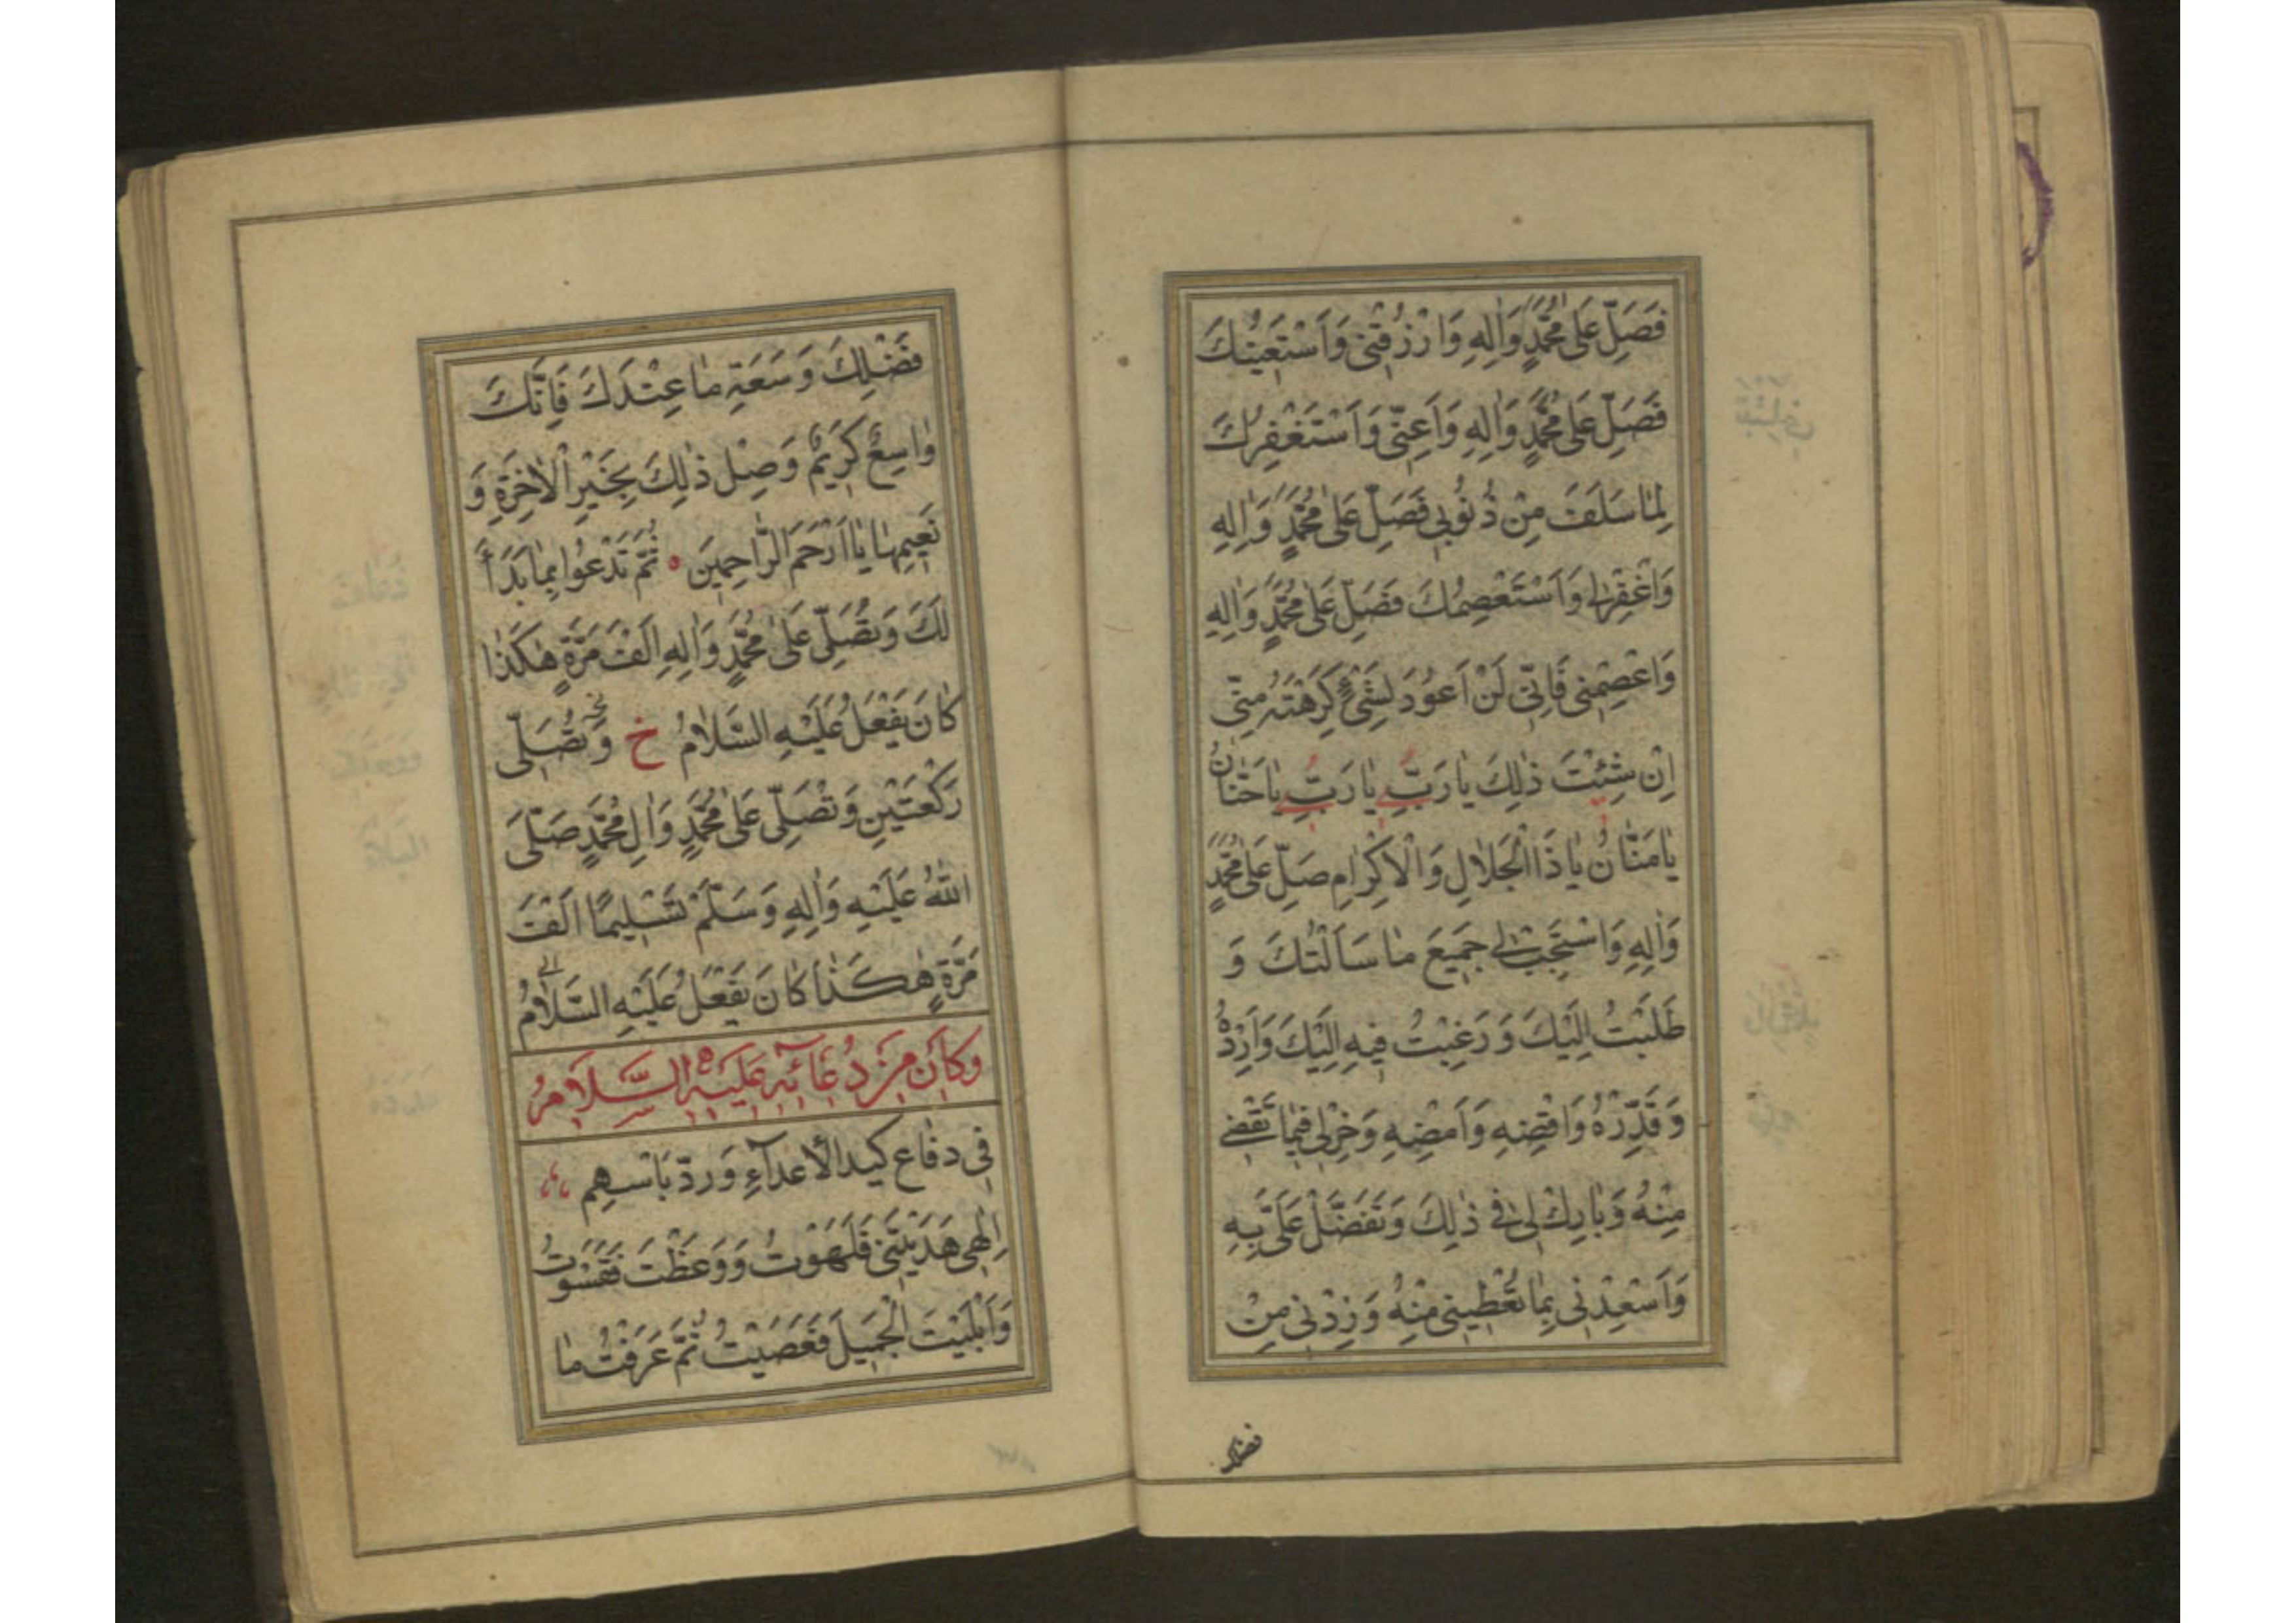 فَصَلِّ عَلىٰ مُحَمَّدٍ وَاٰلِهِ وَارْزُقْنِي وَاَسْتَعِيْنُكَ
فَصَلِّ عَلىٰ مُحَمَّدٍ وَاٰلِهِ وَاَعِنّي وَاَسْتَغْفِرُكَ
لِمٰا سَلَفَ مِنْ ذُنُوبي فَصَلِّ عَلىٰ مُحَمَّدٍ وَاٰلِهِ
وَاغْفِرْلي وَاَسْتَعْصِمُكَ فَصَلِّ عَلىٰ مُحَمَّدٍ وَاٰلِهِ
وَاعْصِمْني فَاِنّي لَنْ اَعُودَ لِشَيْءٍ كَرِهْتَهُ مِنّي
اِنْ شِئْتَ ذٰلِكَ يٰا رَبِّ يٰا رَبِّ يٰا حَنّٰانُ
يٰا مَنّٰانُ يٰا ذَا الْجَلاٰلِ وَالْاَكْرٰامِ صَلِّ عَلىٰ مُحَمَّدٍ
وَاٰلِهِ وَاسْتَجِبْ لي جَميعَ مٰا سَاَلْتُكَ وَ
طَلَبْتُ اِلَيْكَ وَ رَغِبْتُ فيهِ اِلَيْكَ وَاَرِدْهُ
وَ قَدِّرْهُ وَاقْضِهِ وَاَمْضِهِ وَخِرْلي فيمٰا تَقْضي
مِنْهُ وَبٰارِكْ لي في ذٰلِكَ وَتَفَضَّلْ عَلَيَّ بِهِ
وَاَسْعِدْني بِمٰا تُعْطيني مِنْهُ وَ زِدْني مِنْ
فضلك
فَضْلِكَ وَسَعَةِ مٰا عِنْدَكَ فَاِنَّكَ
وٰاسِعٌ كَريمٌ وَصِلْ ذٰلِكَ بِخَيْرِ الْاٰخِرَةِ وَ
نَعيمِهٰا يٰا اَرْحَمَ الرّٰاحِمينَ ٥ ثُمَّ تَدْعُوا بِمٰا بَدَاَ
لَكَ وَتُصَلّي عَلىٰ مُحَمَّدٍ وَاٰلِهِ اَلْفَ مَرَّةٍ هٰكَذٰا
كٰانَ يَفْعَلُ عَلَيْهِ السَّلاٰمُ خ وَتُصَلّي
رَكْعَتَيْنِ وَتُصَلّي عَلىٰ مُحَمَّدٍ وَاٰلِ مُحَمَّدٍ صَلَّى
اللّٰهُ عَلَيْهِ وَاٰلِهِ وَسَلَّمْ تَسْليمًا اَلْفَ
مَرَّةٍ هٰكَذٰا كٰانَ يَفْعَلُ عَلَيْهِ السَّلاٰمُ
وَكٰانَ مِنْ دُعٰائِهِ عَلَيْهِ السَّلاٰمُ
في دفٰاع كيد الأعدآءِ وَردّ بَاْسهِم
اِلٰهي هَدَيْتَني فَلَهَوْتُ وَوَعَظْتَ فَقَسَوْتُ
وَاَبْلَيْتَ الْجَميلَ فَعَصَيْتُ ثُمَّ عَرَفْتُ مٰا